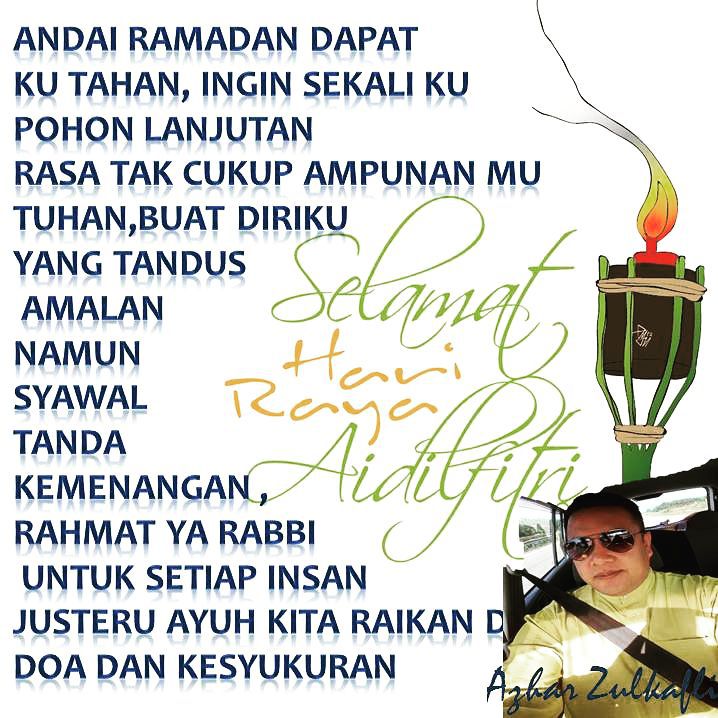 ANDAI RAMADAN DAPAT
KU TAHAN, INGIN SEKALI KU
POHON LANJUTAN
RASA TAK CUKUP AMPUNAN MU
TUHAN,BUAT DIRIKU
YANG TANDUS
AMALAN
NAMUN
SYAWAL
TANDA
KEMENANGAN,
RAHMAT YA RABBI
UNTUK SETIAP INSAN
JUSTERU AYUH KITA RAIKAN D
DOA DAN KESYUKURAN
Selamat
Hari
Raya
Aidilfitri
Azhar Zulkafli